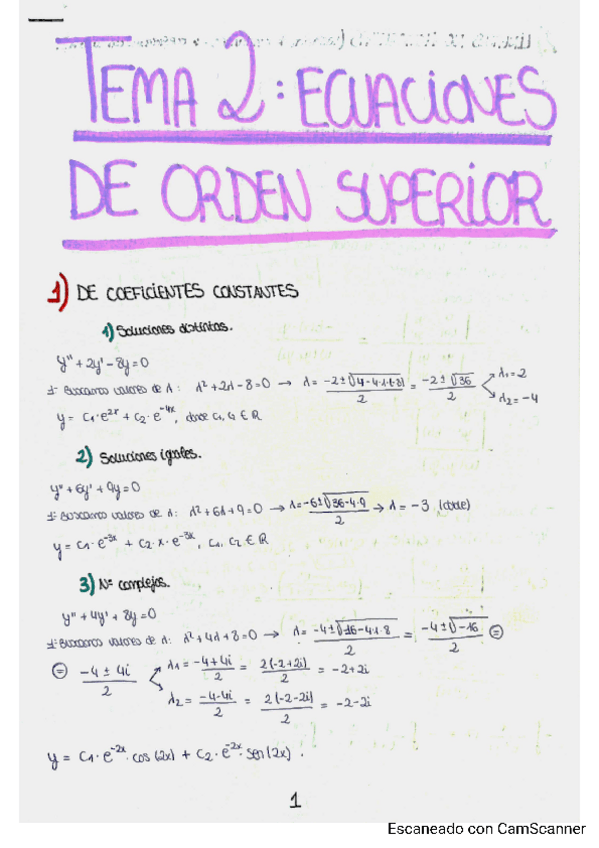 TEMA 2: ECUACIONES
DE ORDEN SUPERIOR
1) DE COEFICIENTES CONSTANTES
1) Soluciones distintas.
y'' + 2y' - 8y = 0
1º Buscamos valores de λ: λ² + 2λ - 8 = 0 → λ = (-2 ± √(4 - 4·1·(-8)))/2 = (-2 ± √36)/2 λ1 = 2 λ2 = -4
y = C1·e^{2x} + C2·e^{-4x}, donde C1, C2 ∈ ℝ
2) Soluciones iguales.
y'' + 6y' + 9y = 0
1º Buscamos valores de λ: λ² + 6λ + 9 = 0 → λ = (-6 ± √(36 - 4·9))/2 → λ = -3 (doble)
y = C1·e^{-3x} + C2·x·e^{-3x}, C1, C2 ∈ ℝ
3) Nº complejos.
y'' + 4y' + 8y = 0
1º Buscamos valores de λ: λ² + 4λ + 8 = 0 → λ = (-4 ± √(16 - 4·1·8))/2 = (-4 ± √-16)/2 =
= (-4 ± 4i)/2 λ1 = (-4 + 4i)/2 = 2(-2 + 2i)/2 = -2 + 2i
λ2 = (-4 - 4i)/2 = 2(-2 - 2i)/2 = -2 - 2i
y = C1·e^{-2x}·cos(2x) + C2·e^{-2x}·sen(2x).
1
Escaneado con CamScanner